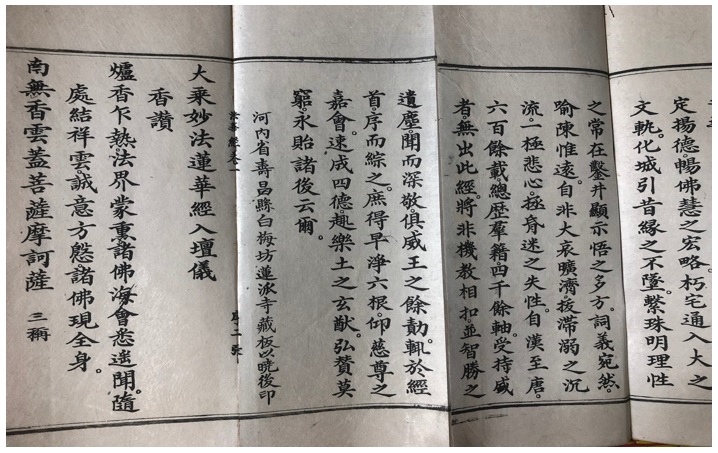 定揚德暢佛慧之宏略。朽宅通入大之
文軌。化城引昔緣之不墜。繫珠明理性
之常在。鑿井顯示悟之多方。詞義宛然。
喻陳惟遠。自非大哀曠濟。拔滯溺之沉
流。一極悲心。拯昏迷之失性。自漢至唐。
六百餘載。總歷羣籍。四千餘軸。受持盛
者。無出此經。將非機教相扣。並智勝之
遺塵。聞而深敬。俱威王之餘勣。輒於經
首。序而綜之。庶得早淨六根。仰慈尊之
嘉會。速成四德。趣樂土之玄猷。弘贊莫
窮。永貽諸後云爾。
河内省壽昌縣白梅坊蓮派寺藏板以曉後印
法華經卷一
大乘妙法蓮華經入壇儀
香讚
爐香乍爇。法界蒙熏。諸佛海會悉遙聞。隨
處結祥雲。誠意方慇。諸佛現全身。
南無香雲蓋菩薩摩訶薩 三稱